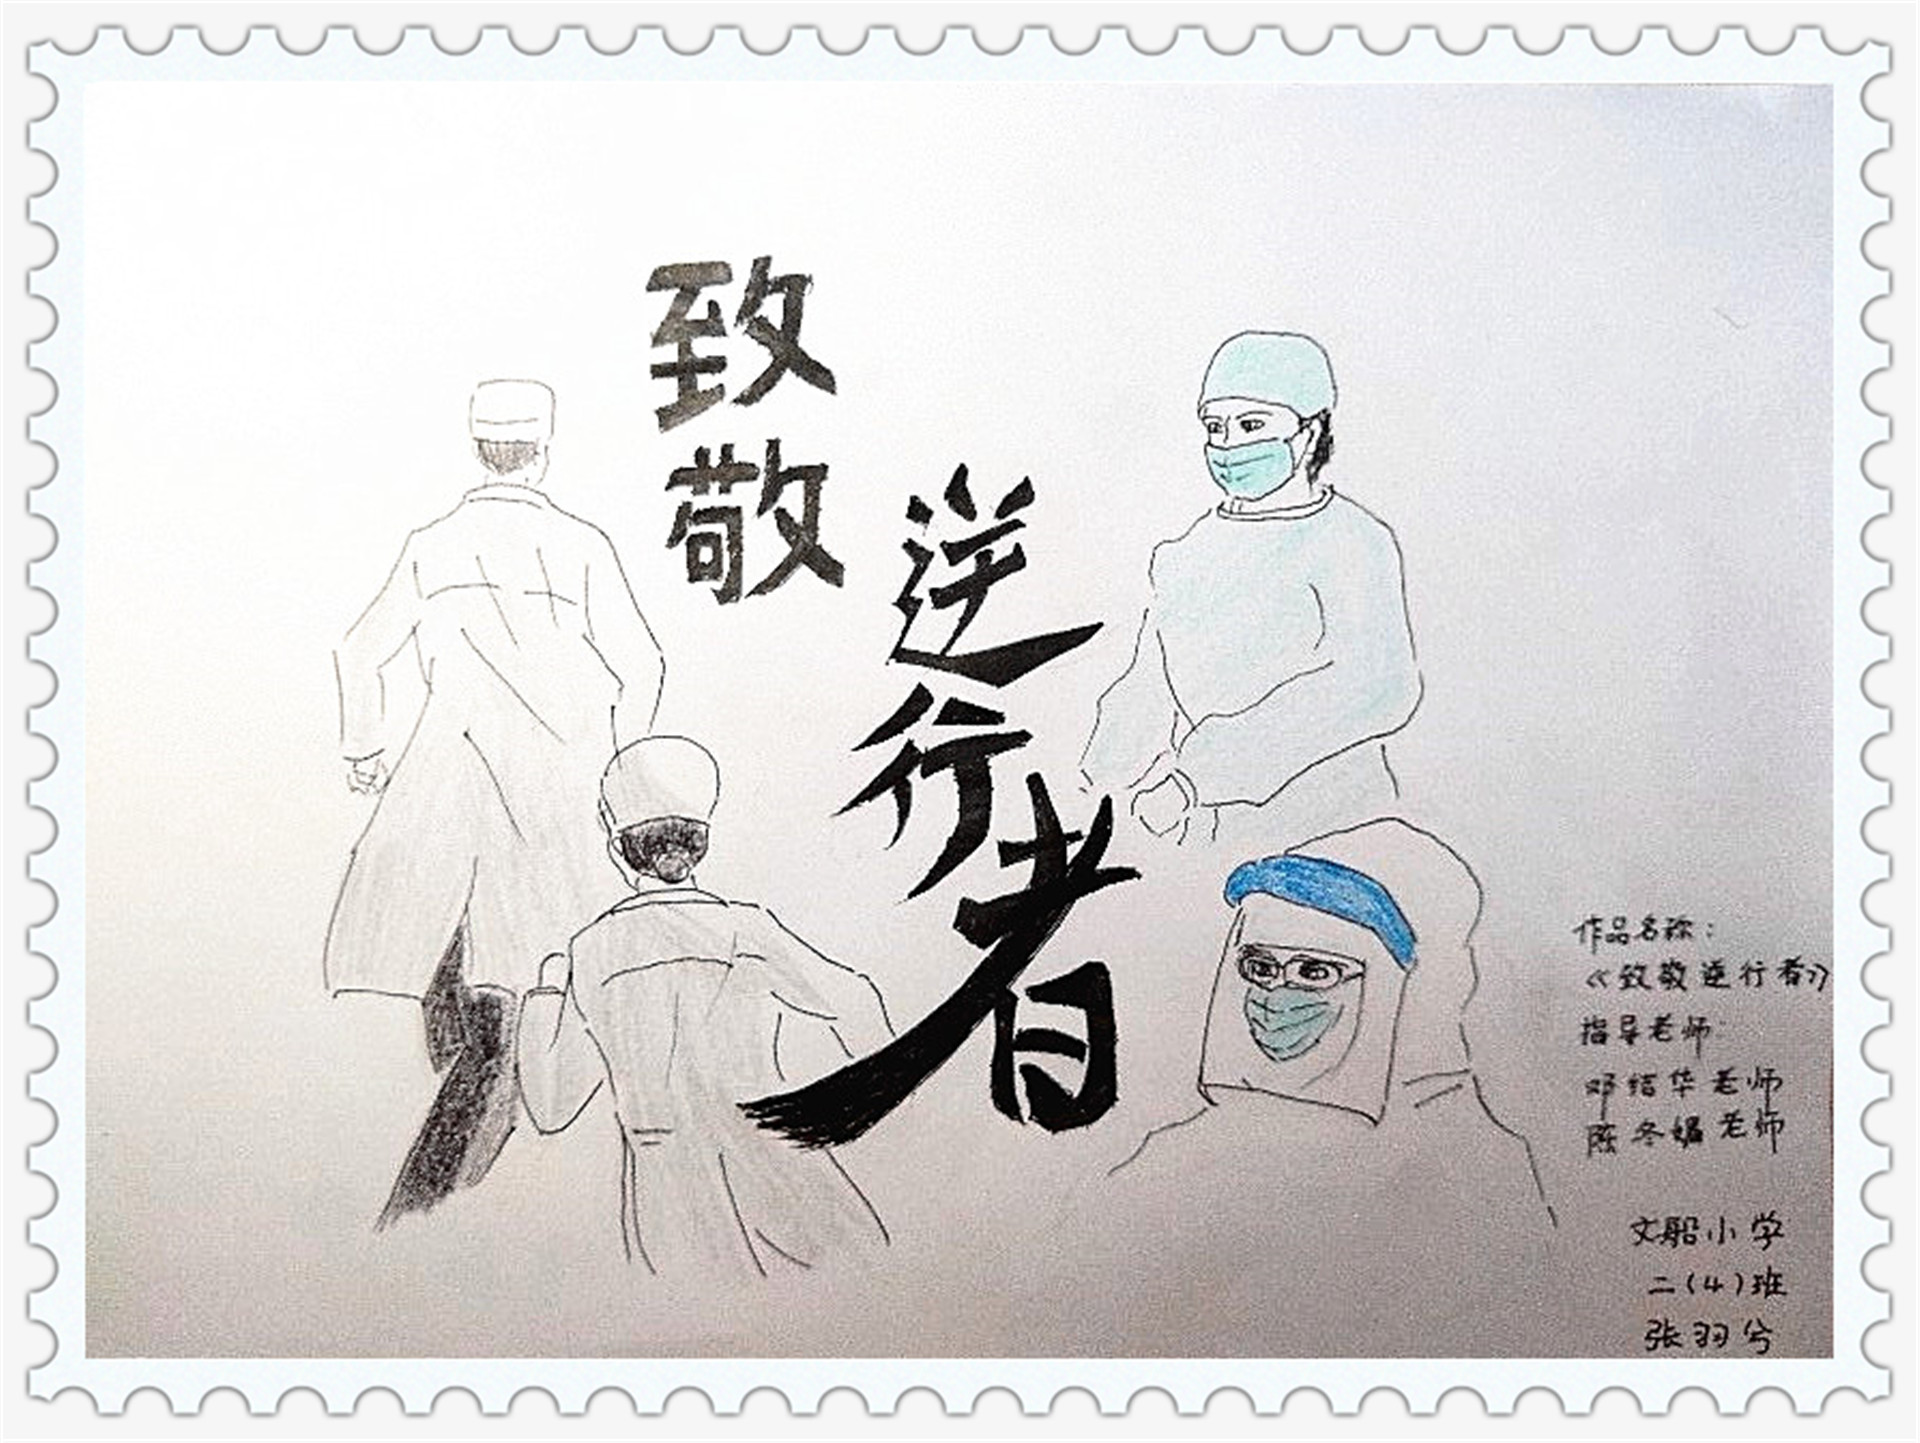 致敬
逆行者
作品名称：
《致敬逆行者》
指导老师:
邓结华老师
陈冬媚老师
文船小学
二(4)班
张羽兮